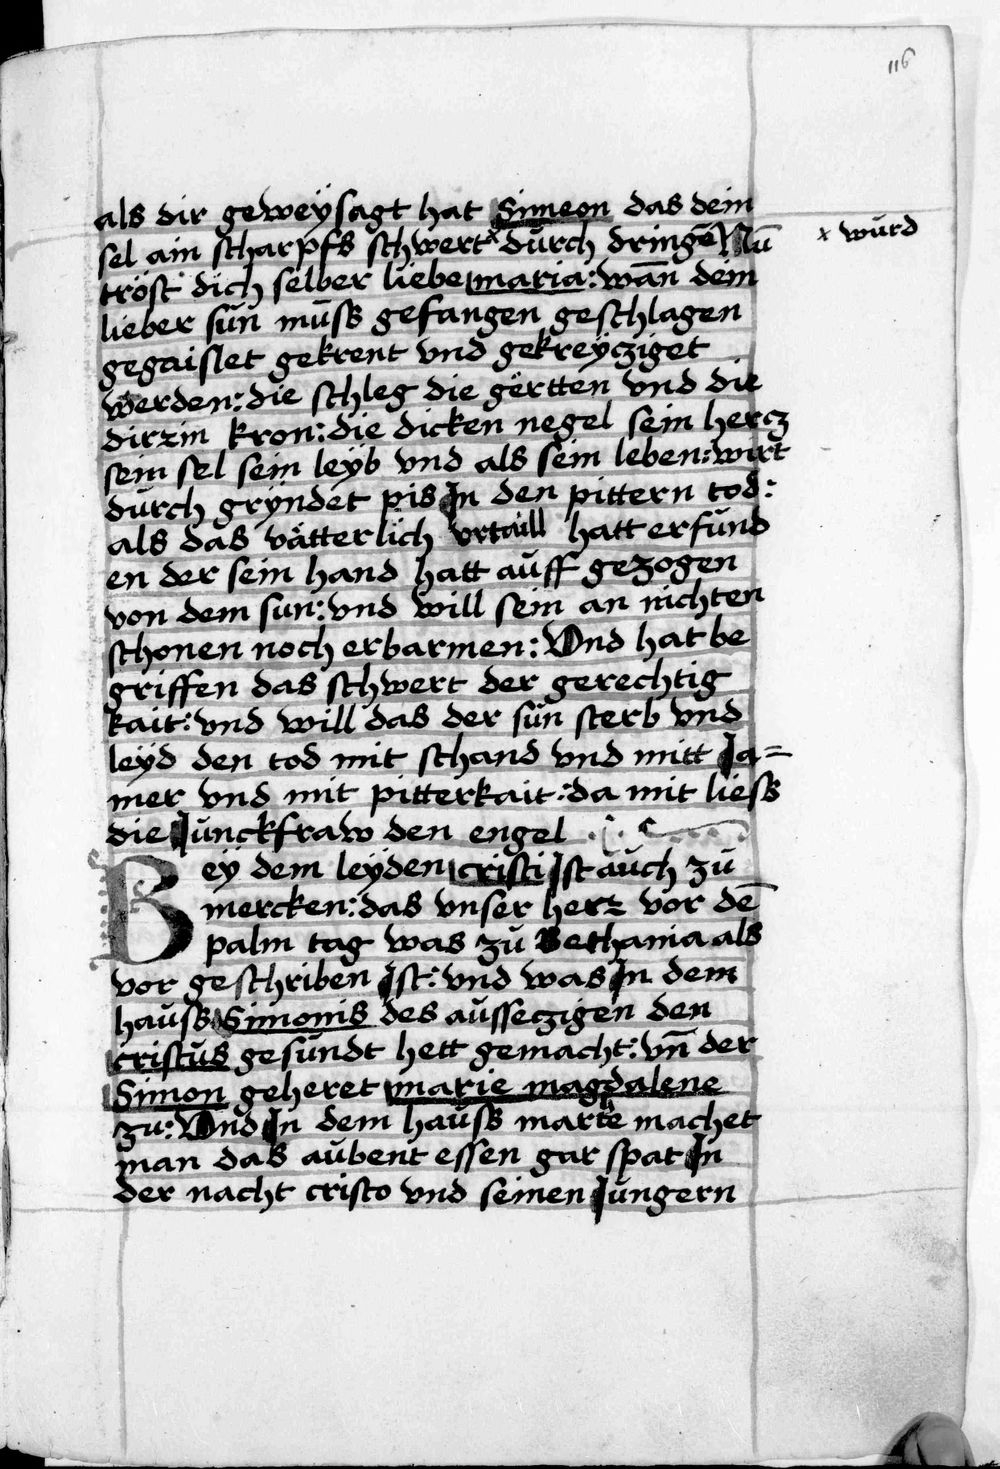 116
als dir geweÿsagt hat Simeon das dein
sel ain scharpfs schwert x durch dringē Nŭ
x wŭrd
tröst dich selber liebe maria: wān dein
lieber sŭn mŭss gefangen geschlagen
gegaislet gekrent vnd gekreÿcziget
werden: die schleg die gërtten vnd die
dirzin kron: die dicken negel sein hercz
sein sel sein leÿb vnd als sein leben: wirt
dŭrch grÿndet pis In den pittern tod:
als das vätterlich vrtaill hatt erfŭnd
en der sein hand hatt aŭff gezogen
von dem sun: vnd will sein an nichten
schonen noch erbarmen: Vnd hat be
griffen das schwert der gerechtig
kait: vnd will das der sŭn sterb vnd
leÿd den tod mit schand vnd mitt Ja=
mer vnd mit pitterkait: da mit liess
die Jŭnckfraw den engel
Beÿ dem leÿden cristi Ist aŭch zŭ
mercken: das vnser herz vor dē
palm tag was zŭ Bethania als
vor geschriben Ist: vnd was In dem
haŭss Simonis des aŭsseczigen den
cristŭs gesŭndt hett gemacht: vn̄ der
Simon geheret marie magdalene
zu: Vnd In dem haŭss marthe machet
man das aŭbent essen gar spat In
der nacht cristo vnd seinen Jŭngern